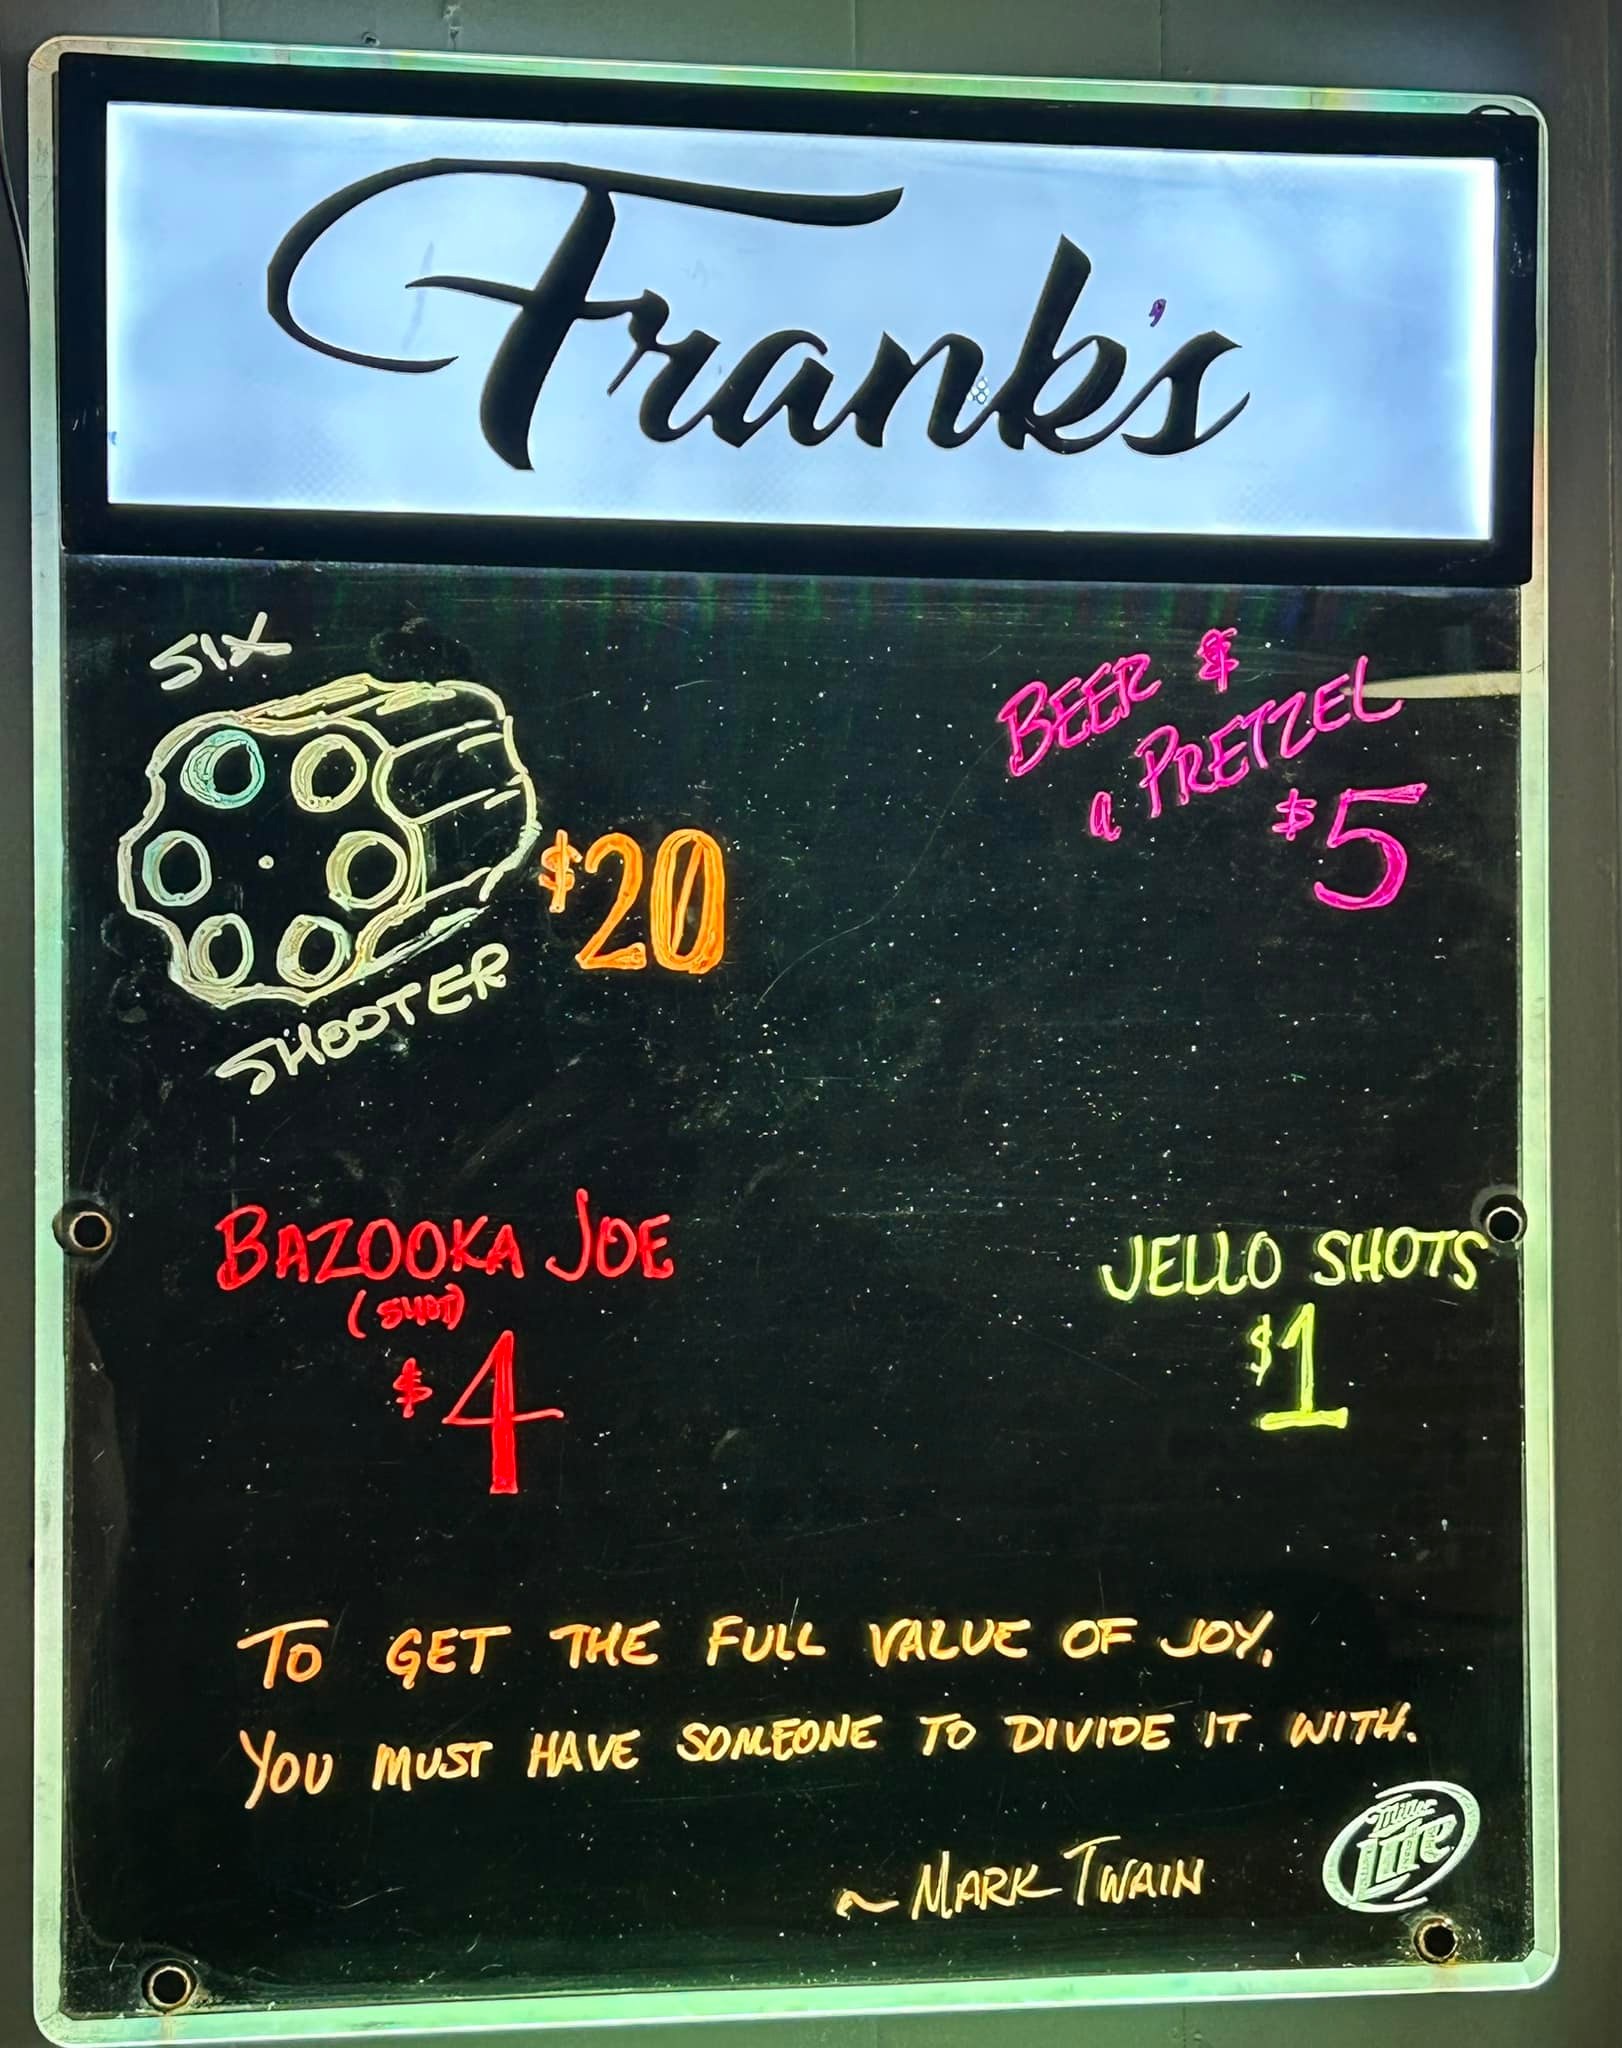 Frank's
SIX
SHOOTER
$20
BEER &
a PRETZEL
$5
BAZOOKA JOE
(SHOT)
$4
JELLO SHOTS
$1
TO GET THE FULL VALUE OF JOY,
YOU MUST HAVE SOMEONE TO DIVIDE IT WITH.
~ MARK TWAIN
Miller
Lite